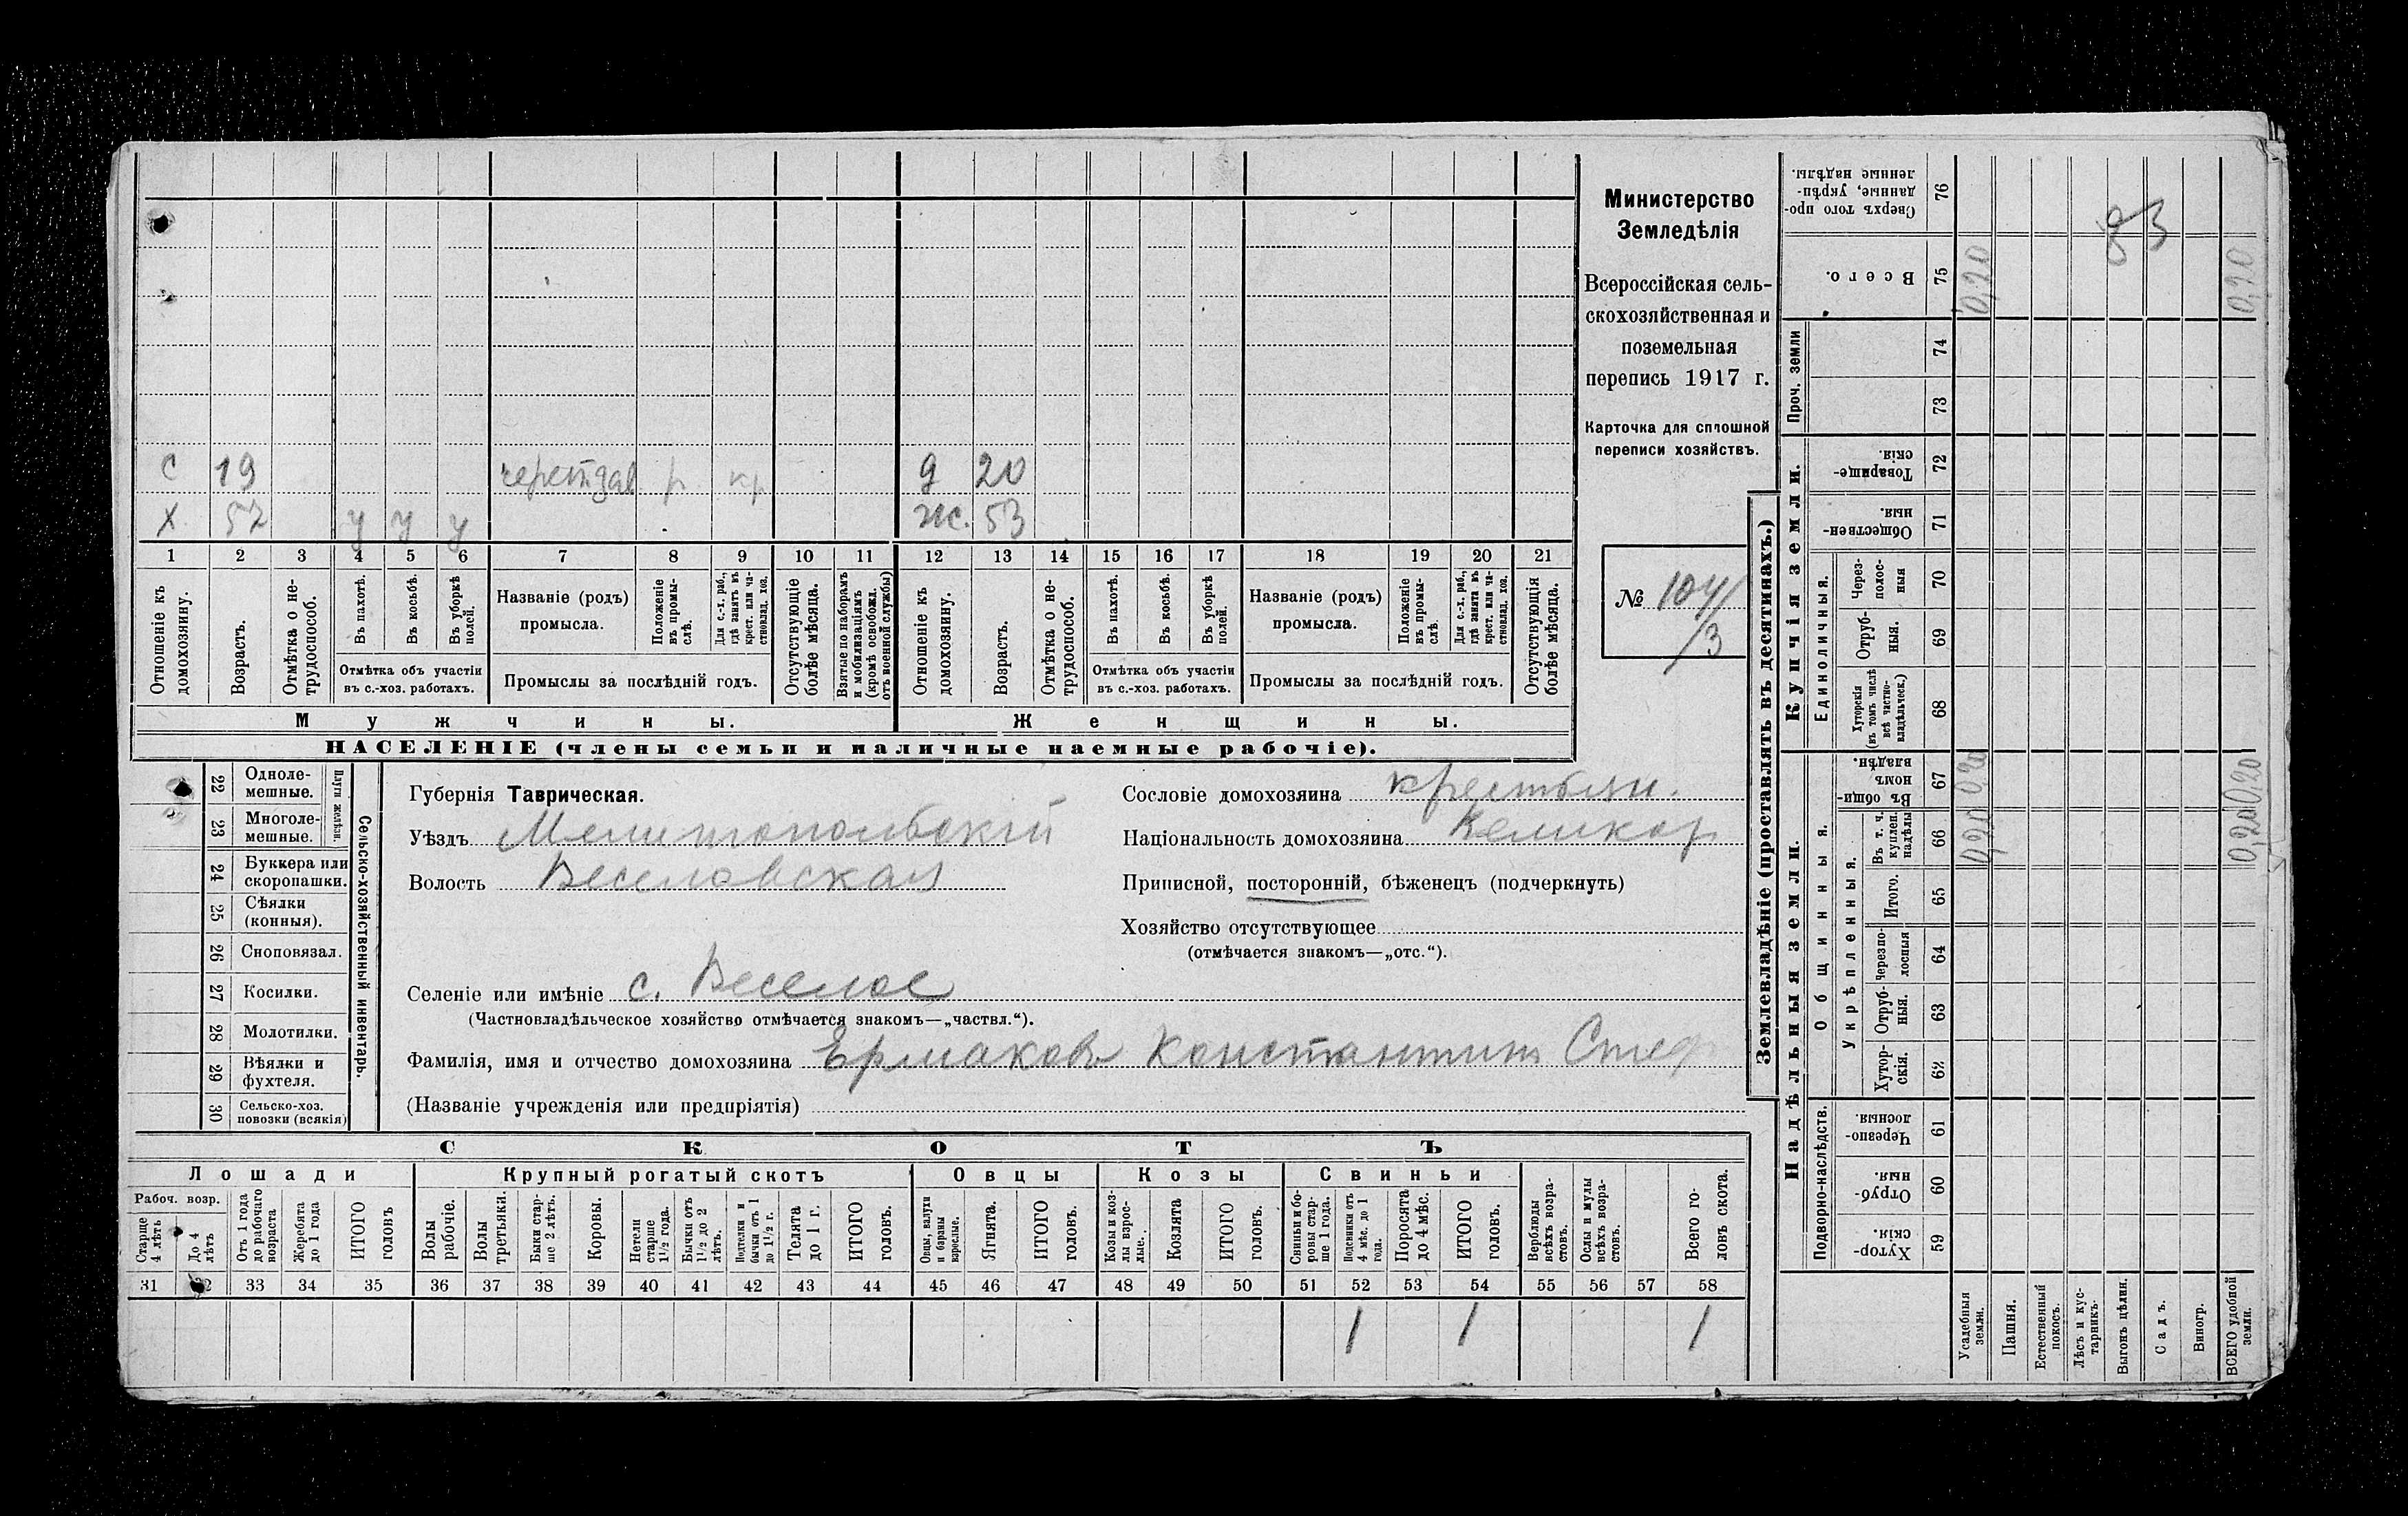 Министерство
Земледѣлія
Всероссійская сель-
скохозяйственная и
поземельная
перепись 1917 г.
Карточка для сплошной
переписи хозяйствъ.
№ 104/
/3
с 19 р кр д 20
х 57 у у у ж. 53
1 2 3 4 5 6 7 8 9 10 11 12 13 14 15 16 17 18 19 20 21
Отношеніе къ домохозяину.
Возрастъ.
Отмѣтка о не-трудоспособ.
Въ пахотѣ.
Въ косьбѣ.
Въ уборкѣ полей.
Отмѣтка объ участіи
въ с.-хоз. работахъ.
Названіе (родъ)
промысла.
Положеніе въ промы-слѣ.
Для с.-х. раб., гдѣ занятъ въ крест. или ча-стновлад. хоз.
Промыслы за послѣдній годъ.
Отсутствующіе болѣе мѣсяца.
Взятые по наборамъ и мобилизаціямъ (кромѣ освобожд. отъ военной службы)
Отношеніе къ домохозяину.
Возрастъ.
Отмѣтка о не-трудоспособ.
Въ пахотѣ.
Въ косьбѣ.
Въ уборкѣ полей.
Отмѣтка объ участіи
въ с.-хоз. работахъ.
Названіе (родъ)
промысла.
Положеніе въ промы-слѣ.
Для с.-х. раб., гдѣ занята въ крест. или ча-стновлад. хоз.
Промыслы за послѣдній годъ.
Отсутствующія болѣе мѣсяца.
Мужчины. Женщины.
НАСЕЛЕНІЕ (члены семьи и наличные наемные рабочіе).
22 Одноле-мешные.
23 Многоле-мешные.
Плуги желѣзн.
24 Буккера или скоропашки.
25 Сѣялки (конныя).
26 Сноповязал.
27 Косилки.
28 Молотилки.
29 Вѣялки и фухтеля.
30 Сельско-хоз. повозки (всякія)
Сельско-хозяйственный инвентарь.
Губернія Таврическая.
Уѣздъ Мелитопольскій
Волость Веселовская
Селеніе или имѣніе с. Веселое
(Частновладѣльческое хозяйство отмѣчается знакомъ—„частвл.“).
Фамилія, имя и отчество домохозяина Ермаковъ Константинъ Стеф
(Названіе учрежденія или предпріятія)
Сословіе домохозяина крестьян.
Національность домохозяина Великор
Приписной, посторонній, бѣженецъ (подчеркнуть)
Хозяйство отсутствующее
(отмѣчается знакомъ—„отс.“).
СКОТЪ
Лошади Крупный рогатый скотъ Овцы Козы Свиньи
Рабоч. возр.
Старше 4 лѣтъ
До 4 лѣтъ
Отъ 1 года до рабочаго возраста
Жеребята до 1 года
ИТОГО головъ
Волы рабочіе.
Волы третьяки.
Быки стар-ше 2 лѣтъ.
Коровы.
Нетели старше 1½ года.
Бычки отъ 1½ до 2 лѣтъ.
Подтелки и бычки отъ 1 до 1½ г.
Телята до 1 г.
ИТОГО головъ.
Овцы, валухи и бараны взрослые.
Ягнята.
ИТОГО головъ.
Козы и коз-лы взрос-лые.
Козлята
ИТОГО головъ.
Свиньи и бо-ровы стар-ше 1 года.
Подсвинки отъ 4 мѣс. до 1 года.
Поросята до 4 мѣс.
ИТОГО головъ.
Верблюды всѣхъ возра-стовъ.
Ослы и мулы всѣхъ возра-стовъ.
Всего го-ловъ скота.
31 32 33 34 35 36 37 38 39 40 41 42 43 44 45 46 47 48 49 50 51 52 53 54 55 56 57 58
1 1 1
Землевладѣніе (проставлять въ десятинахъ.)
Надѣльныя земли. Купчія земли. Проч. земли
Подворно-наслѣдств.
Общинныя.
Укрѣпленныя.
Единоличныя.
Хутор-скія. 59
Отруб-ныя. 60
Черезпо-лосныя. 61
Хутор-скія. 62
Отруб-ныя. 63
Черезпо-лосныя 64
Итого. 65
Въ т. ч. куплен. надѣлы 66
Въ общин-номъ владѣн. 67
Хуторскія (въ томъ числѣ всѣ частно-владѣльческ.) 68
Отруб-ныя. 69
Через-полос-ныя 70
Обществен-ныя. 71
Товарище-скія. 72
73
74
Всего. 75
Сверхъ того про-данные, укрѣп-ленные надѣлы. 76
Усадебныя земли. 0,20 0,20 0,20
Пашня.
Естественный покосъ.
Лѣсъ и кус-тарникъ.
Выгонъ цѣлин.
Садъ.
Виногр.
ВСЕГО удобной земли. 0,20 0,20 0,20